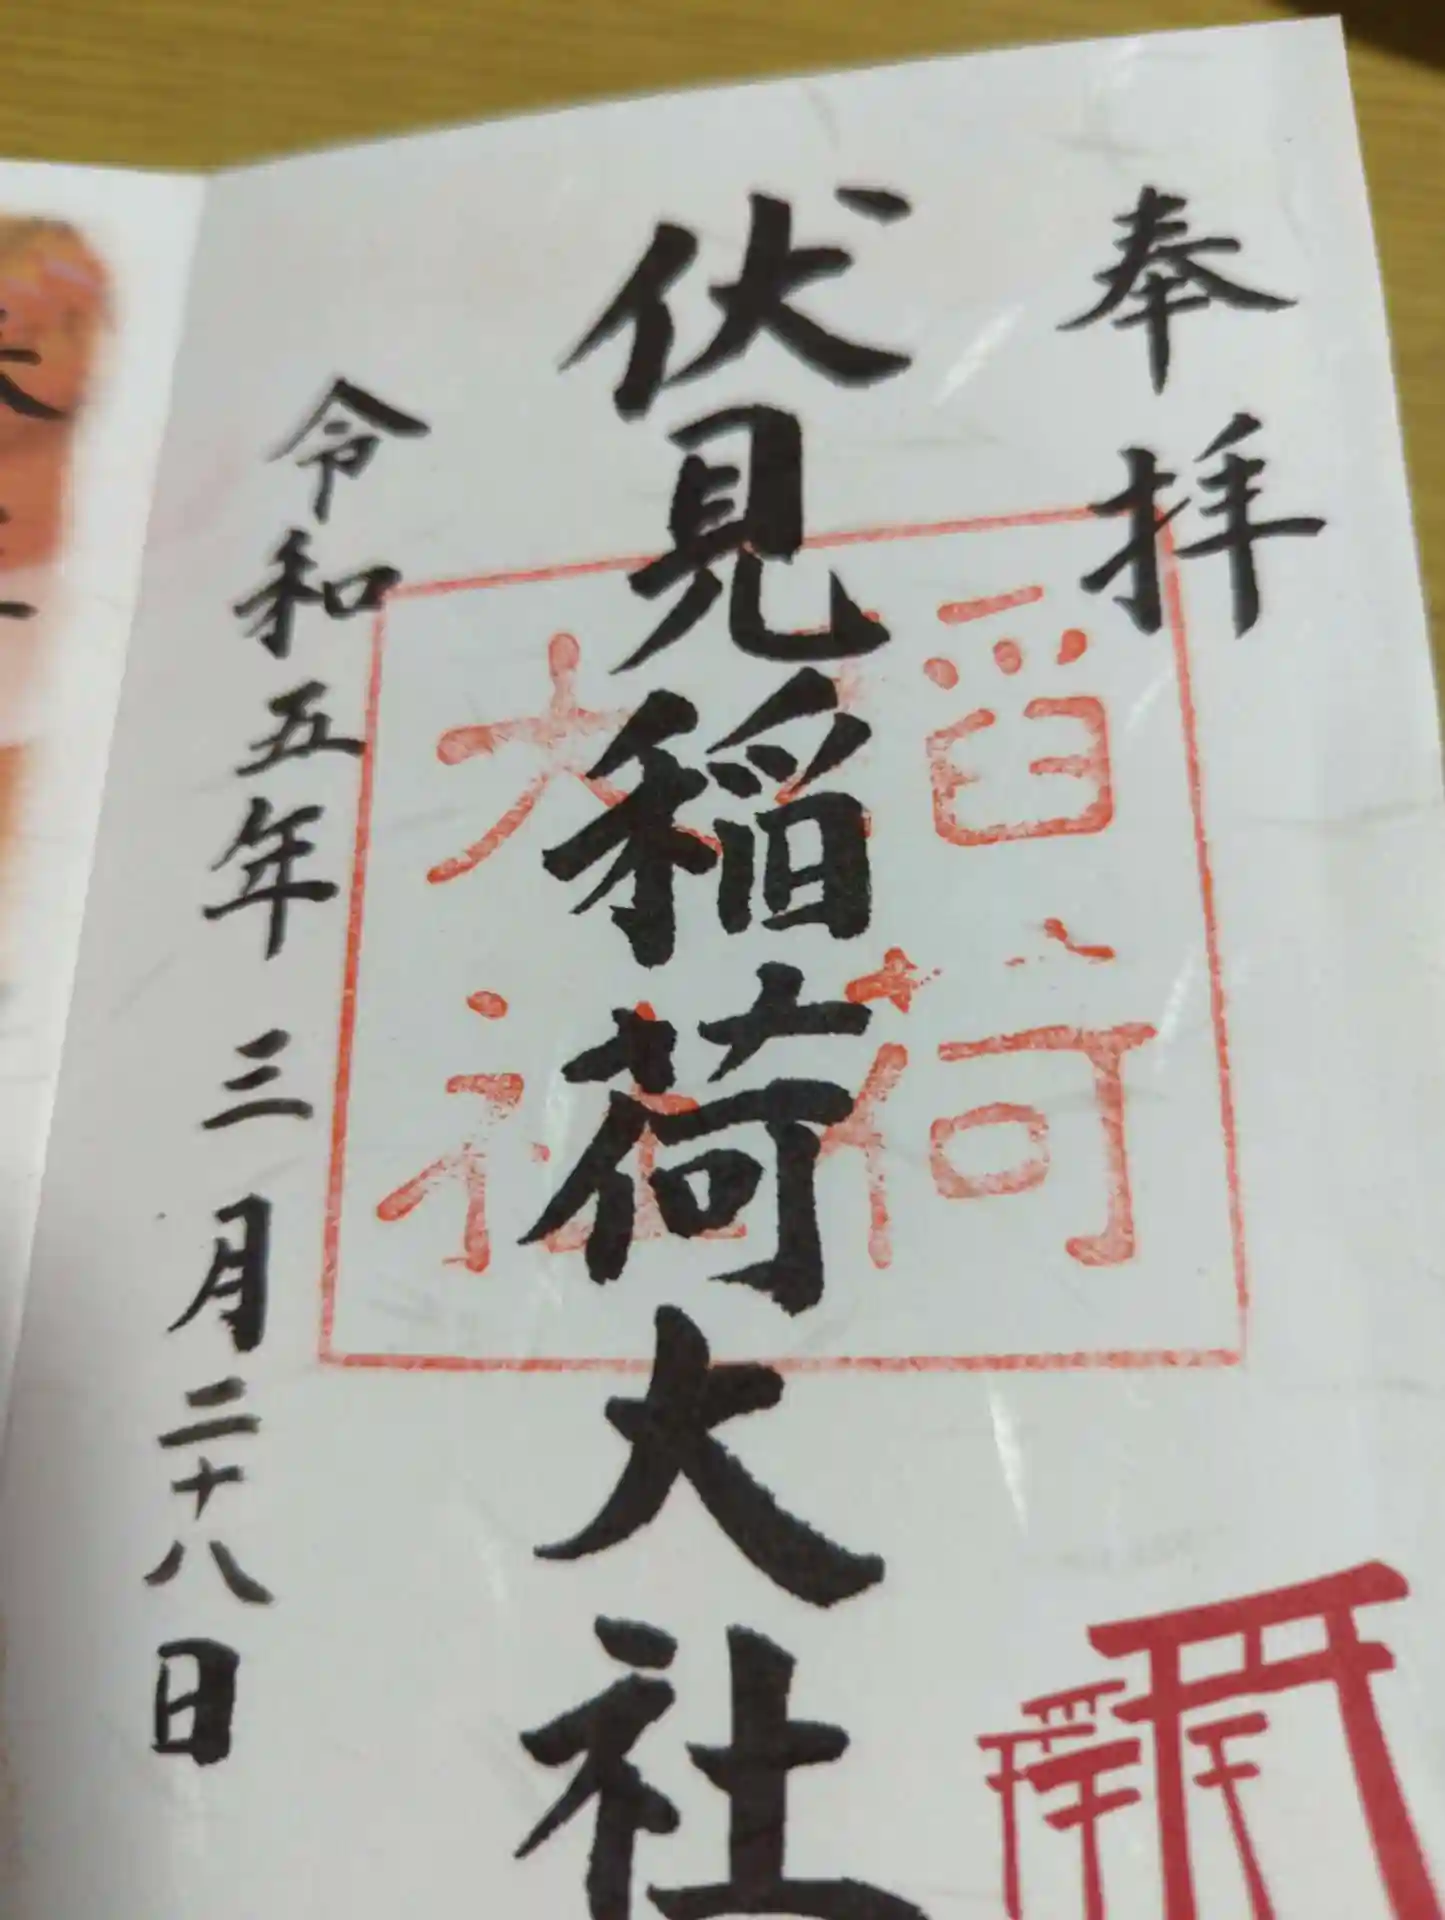 奉拝
伏見稲荷大社
令和五年三月二十八日